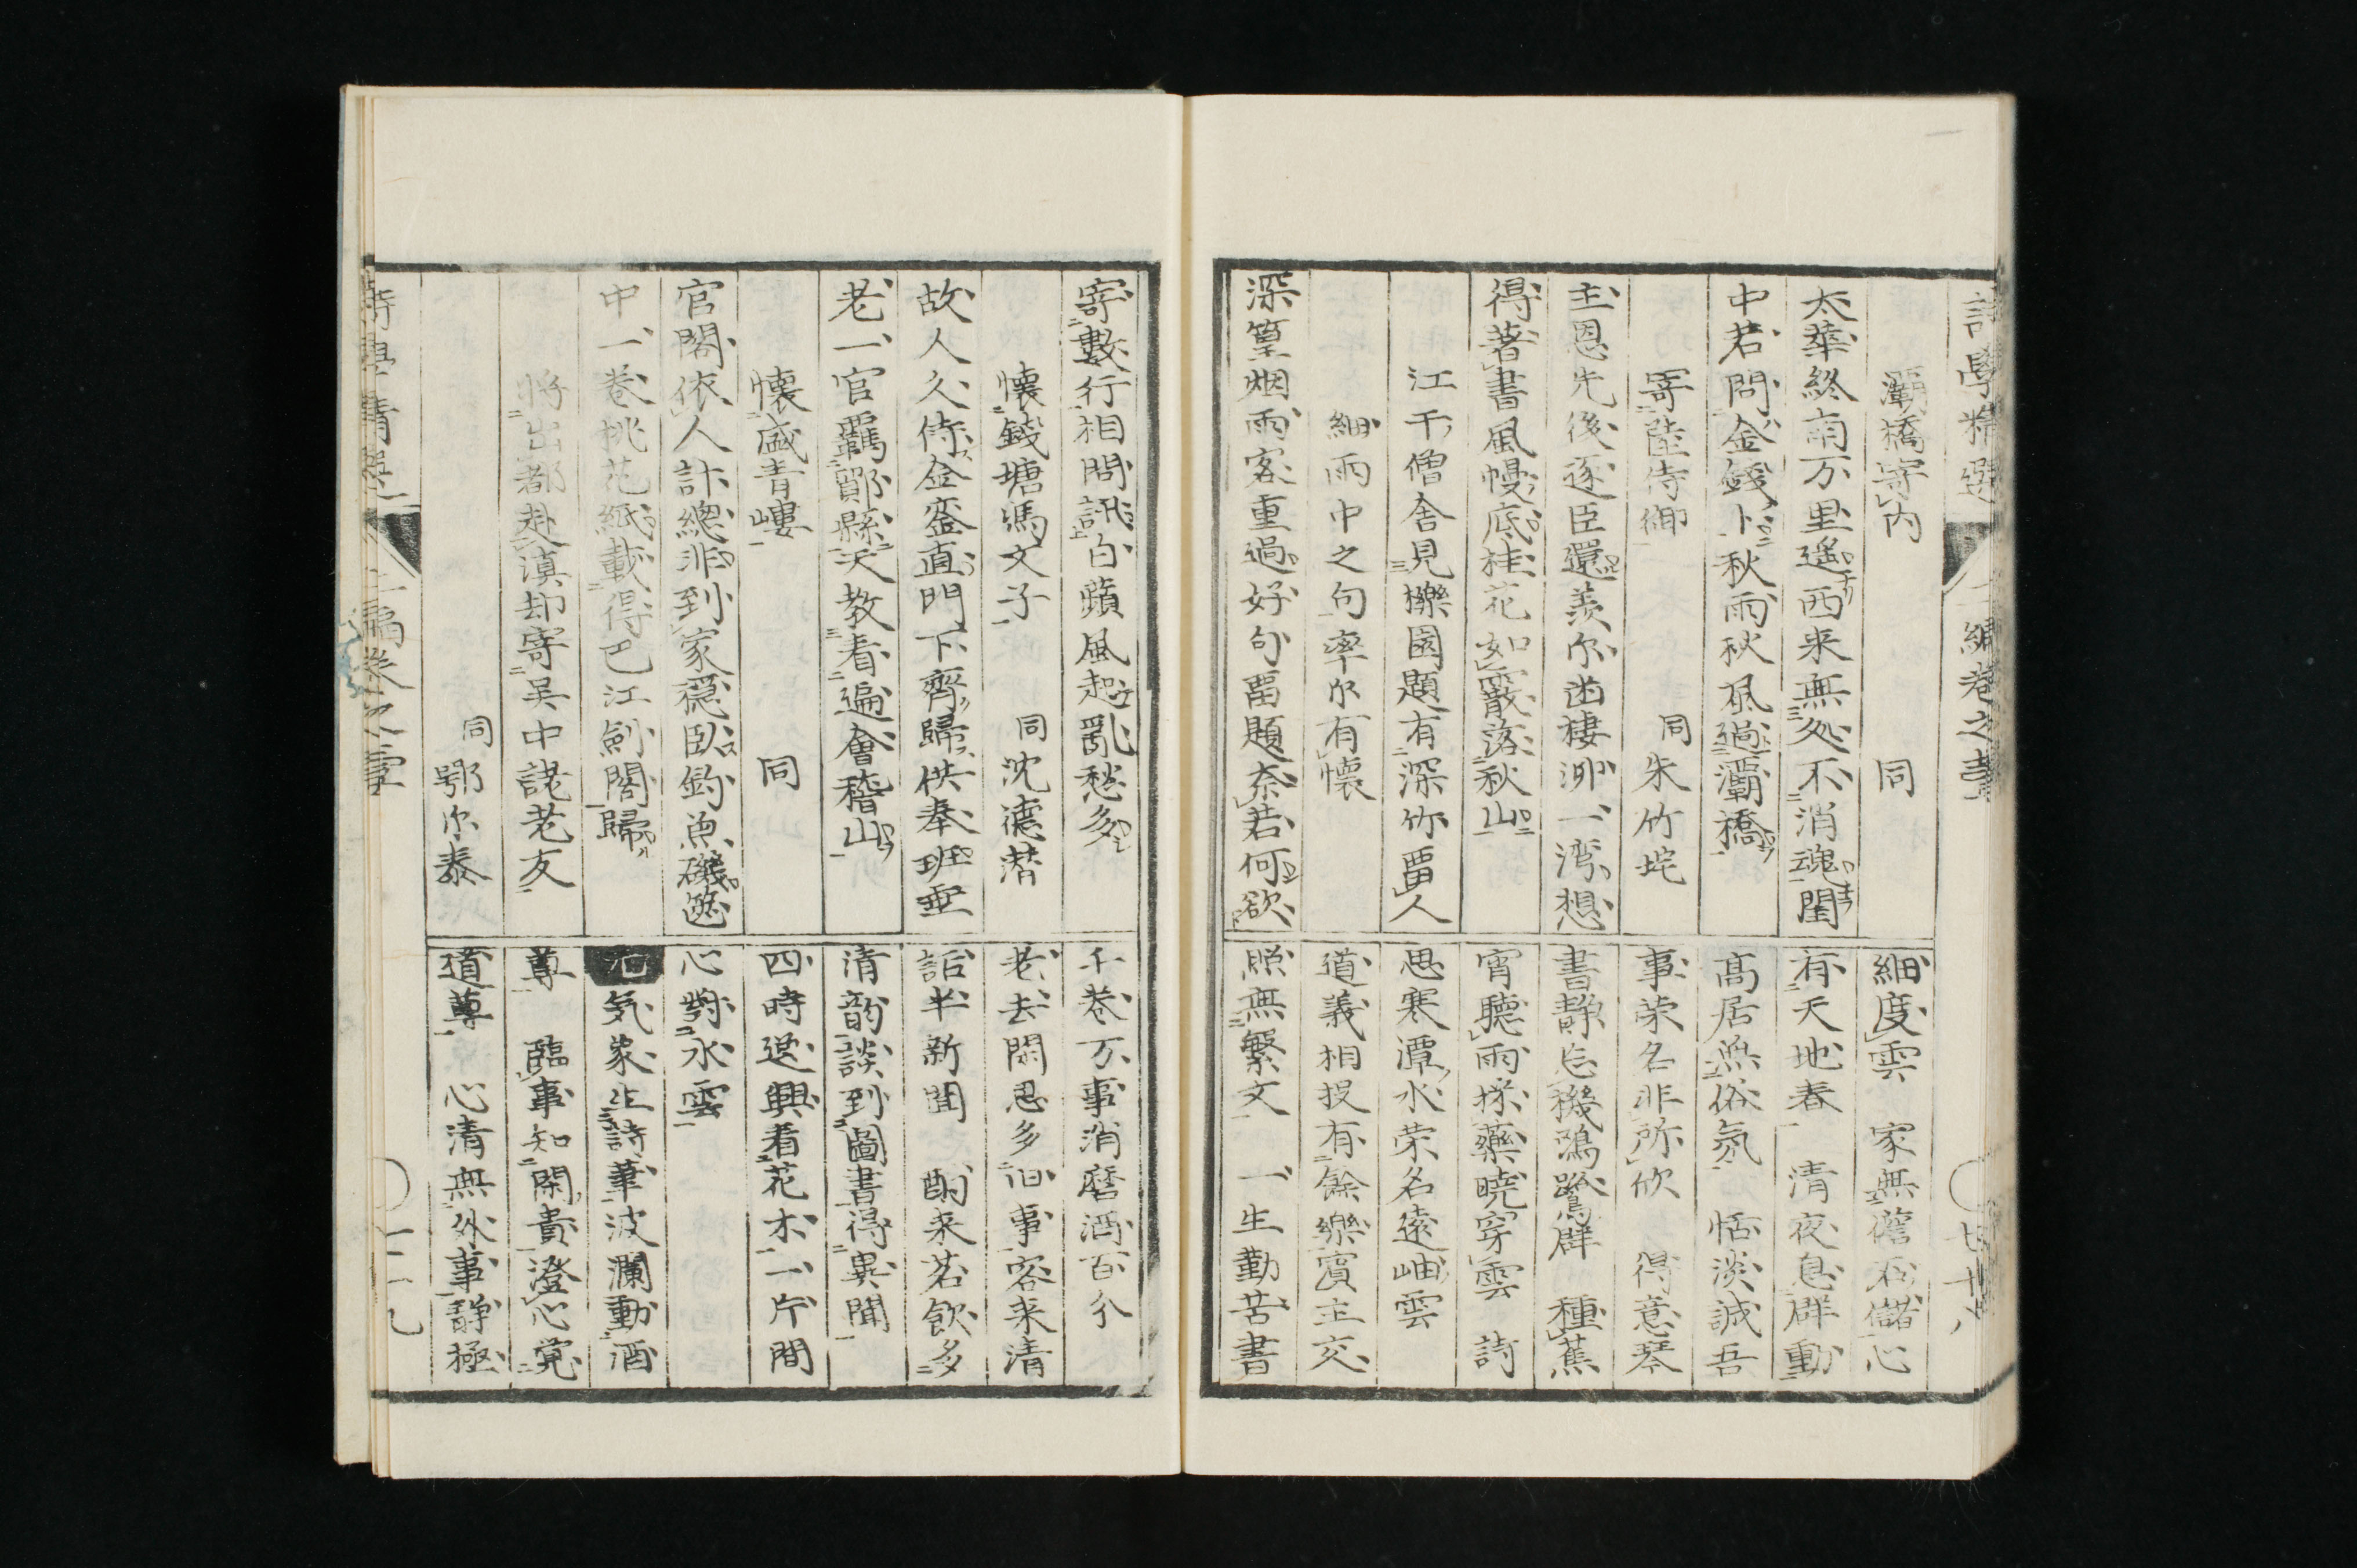 詩學精選 上編卷之壹 七十八
灞橋寄内 同
太華終南万里遙西来無処不消魂閨
中若問金錢卜秋雨秋風過灞橋
寄陸侍御 同朱竹垞
主恩先後逐臣還羨尓凾棲泖一湾想
得著書風幔底桂花如霰落秋山
江干僧舎見櫟園題有深竹畱人
細雨中之句率尓有懐
深篁烟雨客重過好句畱題奈若何欲
細度雲 家無儋石儲心
有天地春 清夜息群動
高居無俗氛 恬淡誠吾
事荣名非所欣 得意琴
書静忘機鴻鷺群 種蕉
宵聴雨採藥暁穿雲 詩
思寒潭水荣名遠岫雲
道義相投有餘樂賓主交
際無繁文 一生勤苦書
寄數行相問訊白蘋風起亂愁多
懐錢塘馮文子 同沈德潜
故人久侍金鑾直門下齊歸供奉班垂
老一官羈鄮縣天教看遍會稽山
懐盛青嶁 同
官閣依人計總非到家穏臥釣魚磯篋
中一巻桃花紙載得巴江劍閣歸
將出都赴滇却寄吴中諸老友
同鄂尓泰
千巻万事消磨酒百分
老去閑思多旧事客来清
話半新聞 酌来茗飲多
清韵談到圖書得異聞
四時遞興看花木一片閒
心對水雲
元気象生詩筆波瀾動酒
尊 臨事知閑貴澄心覚
道尊 心清無外事静極
詩學精選 上編卷之壹